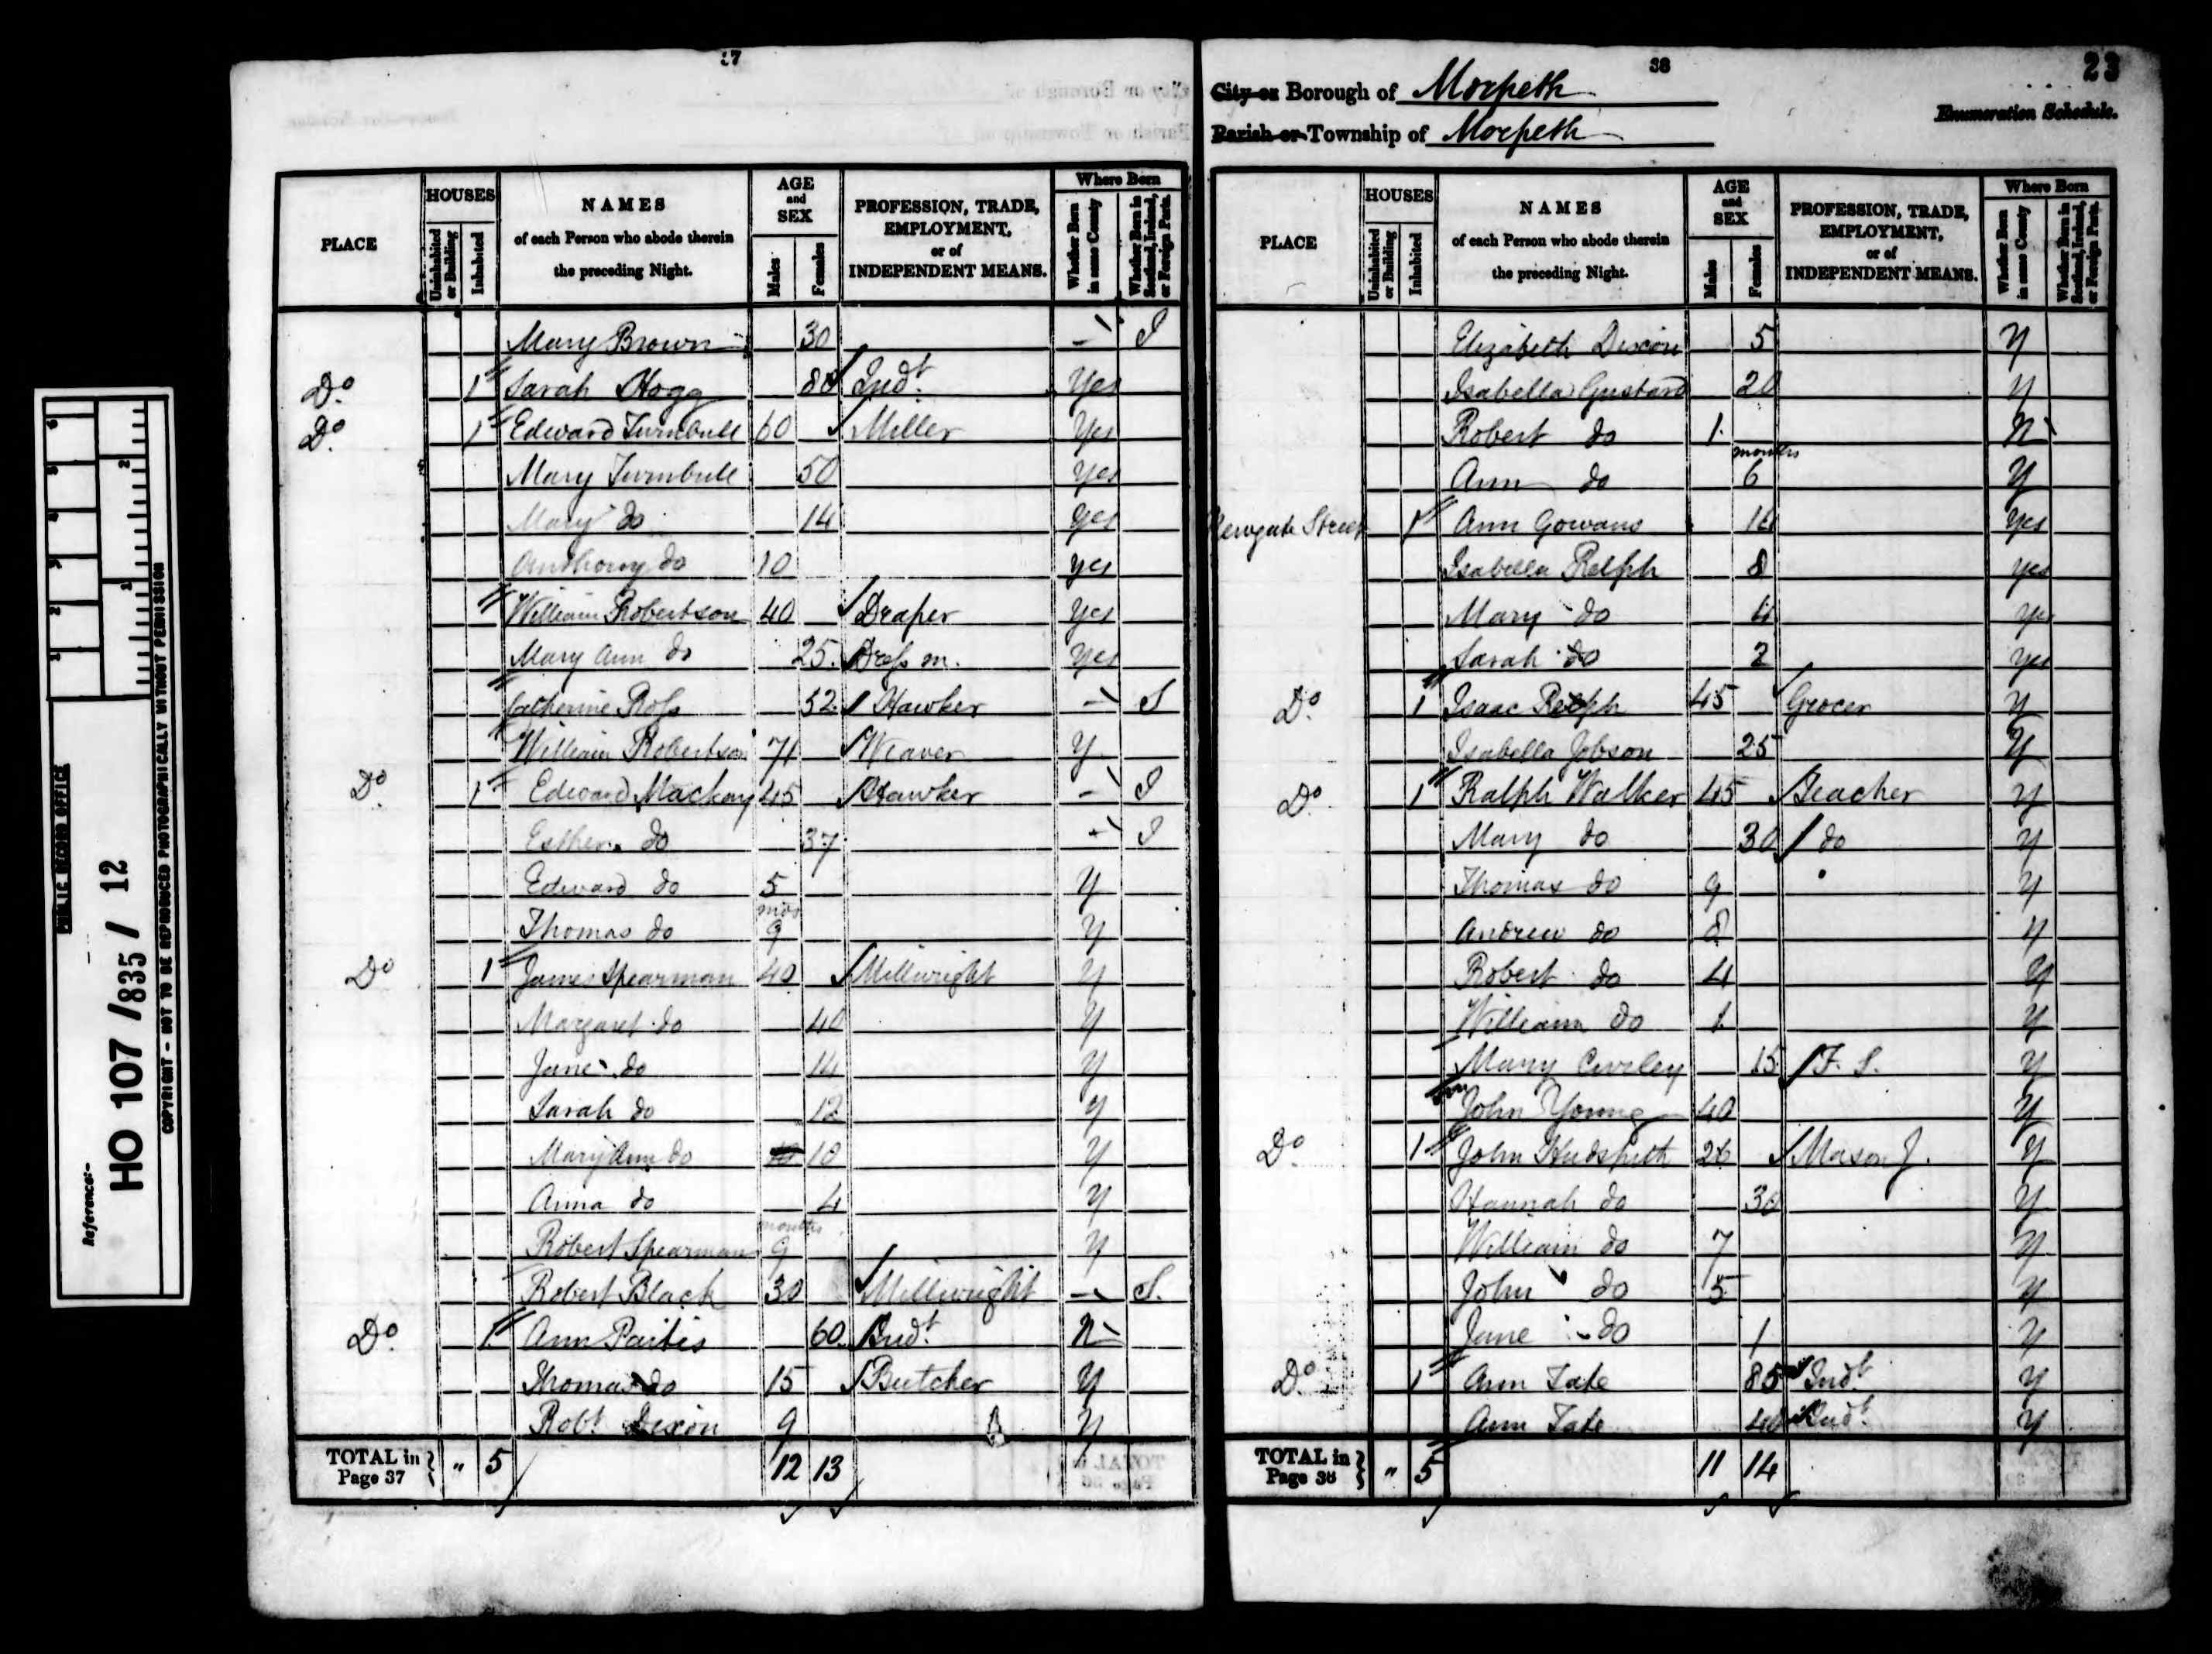 37
PLACE
HOUSES
Uninhabited or Building
Inhabited
NAMES
of each Person who abode therein
the preceding Night.
AGE
and
SEX
Males
Females
PROFESSION, TRADE,
EMPLOYMENT,
or of
INDEPENDENT MEANS.
Where Born
Whether Born in same County
Whether Born in Scotland, Ireland, or Foreign Parts.
Mary Brown 30 - I
Do 1 Sarah Hogg 80 Indt. Yes
Do 1 Edward Turnbull 60 Miller Yes
Mary Turnbull 50 Yes
Mary do 14 Yes
Anthony do 10 Yes
William Robertson 40 Draper Yes
Mary Ann do 25 Dress m. Yes
Catherine Ross 52 Hawker - S
William Robertson 71 Weaver Y
Do 1 Edward Mackay 45 Hawker - I
Esther do 37 - I
Edward do 5 Y
Thomas do mos 9 Y
Do 1 James Spearman 40 Millwright Y
Margaret do 40 Y
Jane do 14 Y
Sarah do 12 Y
Mary Ann do 10 10 Y
Anna do 4 Y
Robert Spearman months 9 Y
Robert Black 30 Millwright - S.
Do 1 Ann 60 Indt. N
Thomas do 15 Butcher Y
Robt Dixon 9 Y
TOTAL in Page 37 " 5 12 13
38
23
City or Borough of Morpeth
Parish or Township of Morpeth
Enumeration Schedule.
PLACE
HOUSES
Uninhabited or Building
Inhabited
NAMES
of each Person who abode therein
the preceding Night.
AGE
and
SEX
Males
Females
PROFESSION, TRADE,
EMPLOYMENT,
or of
INDEPENDENT MEANS.
Where Born
Whether Born in same County
Whether Born in Scotland, Ireland, or Foreign Parts.
Elizabeth Dixon 5 Y
Isabella Gustard 20 Y
Robert do 1 N
Ann do months 6 Y
Newgate Street 1 Ann Gowans Yes
Isabella Relph 8 Yes
Mary do 4 Yes
Sarah do 2 Yes
Do 1 Isaac Relph 45 Grocer Y
Isabella Jobson 25 Y
Do 1 Ralph Walker 45 Teacher Y
Mary do 30 do Y
Thomas do 9 Y
Andrew do 8 Y
Robert do 4 Y
William do 1 Y
Mary 15 F. S. Y
John Young 40 Y
Do 1 John Hudspith 26 Mason J. Y
Hannah do 30 Y
William do 7 Y
John do 5 Y
Jane do 1 Y
Do 1 Ann Tate 85 Indt. Y
Ann Tate 40 Indt. Y
TOTAL in Page 38 " 5 11 14
PUBLIC RECORD OFFICE
Reference:-
HO 107 / 835 / 12
COPYRIGHT - NOT TO BE REPRODUCED PHOTOGRAPHICALLY WITHOUT PERMISSION
1 2 3 4 5 6
1 2